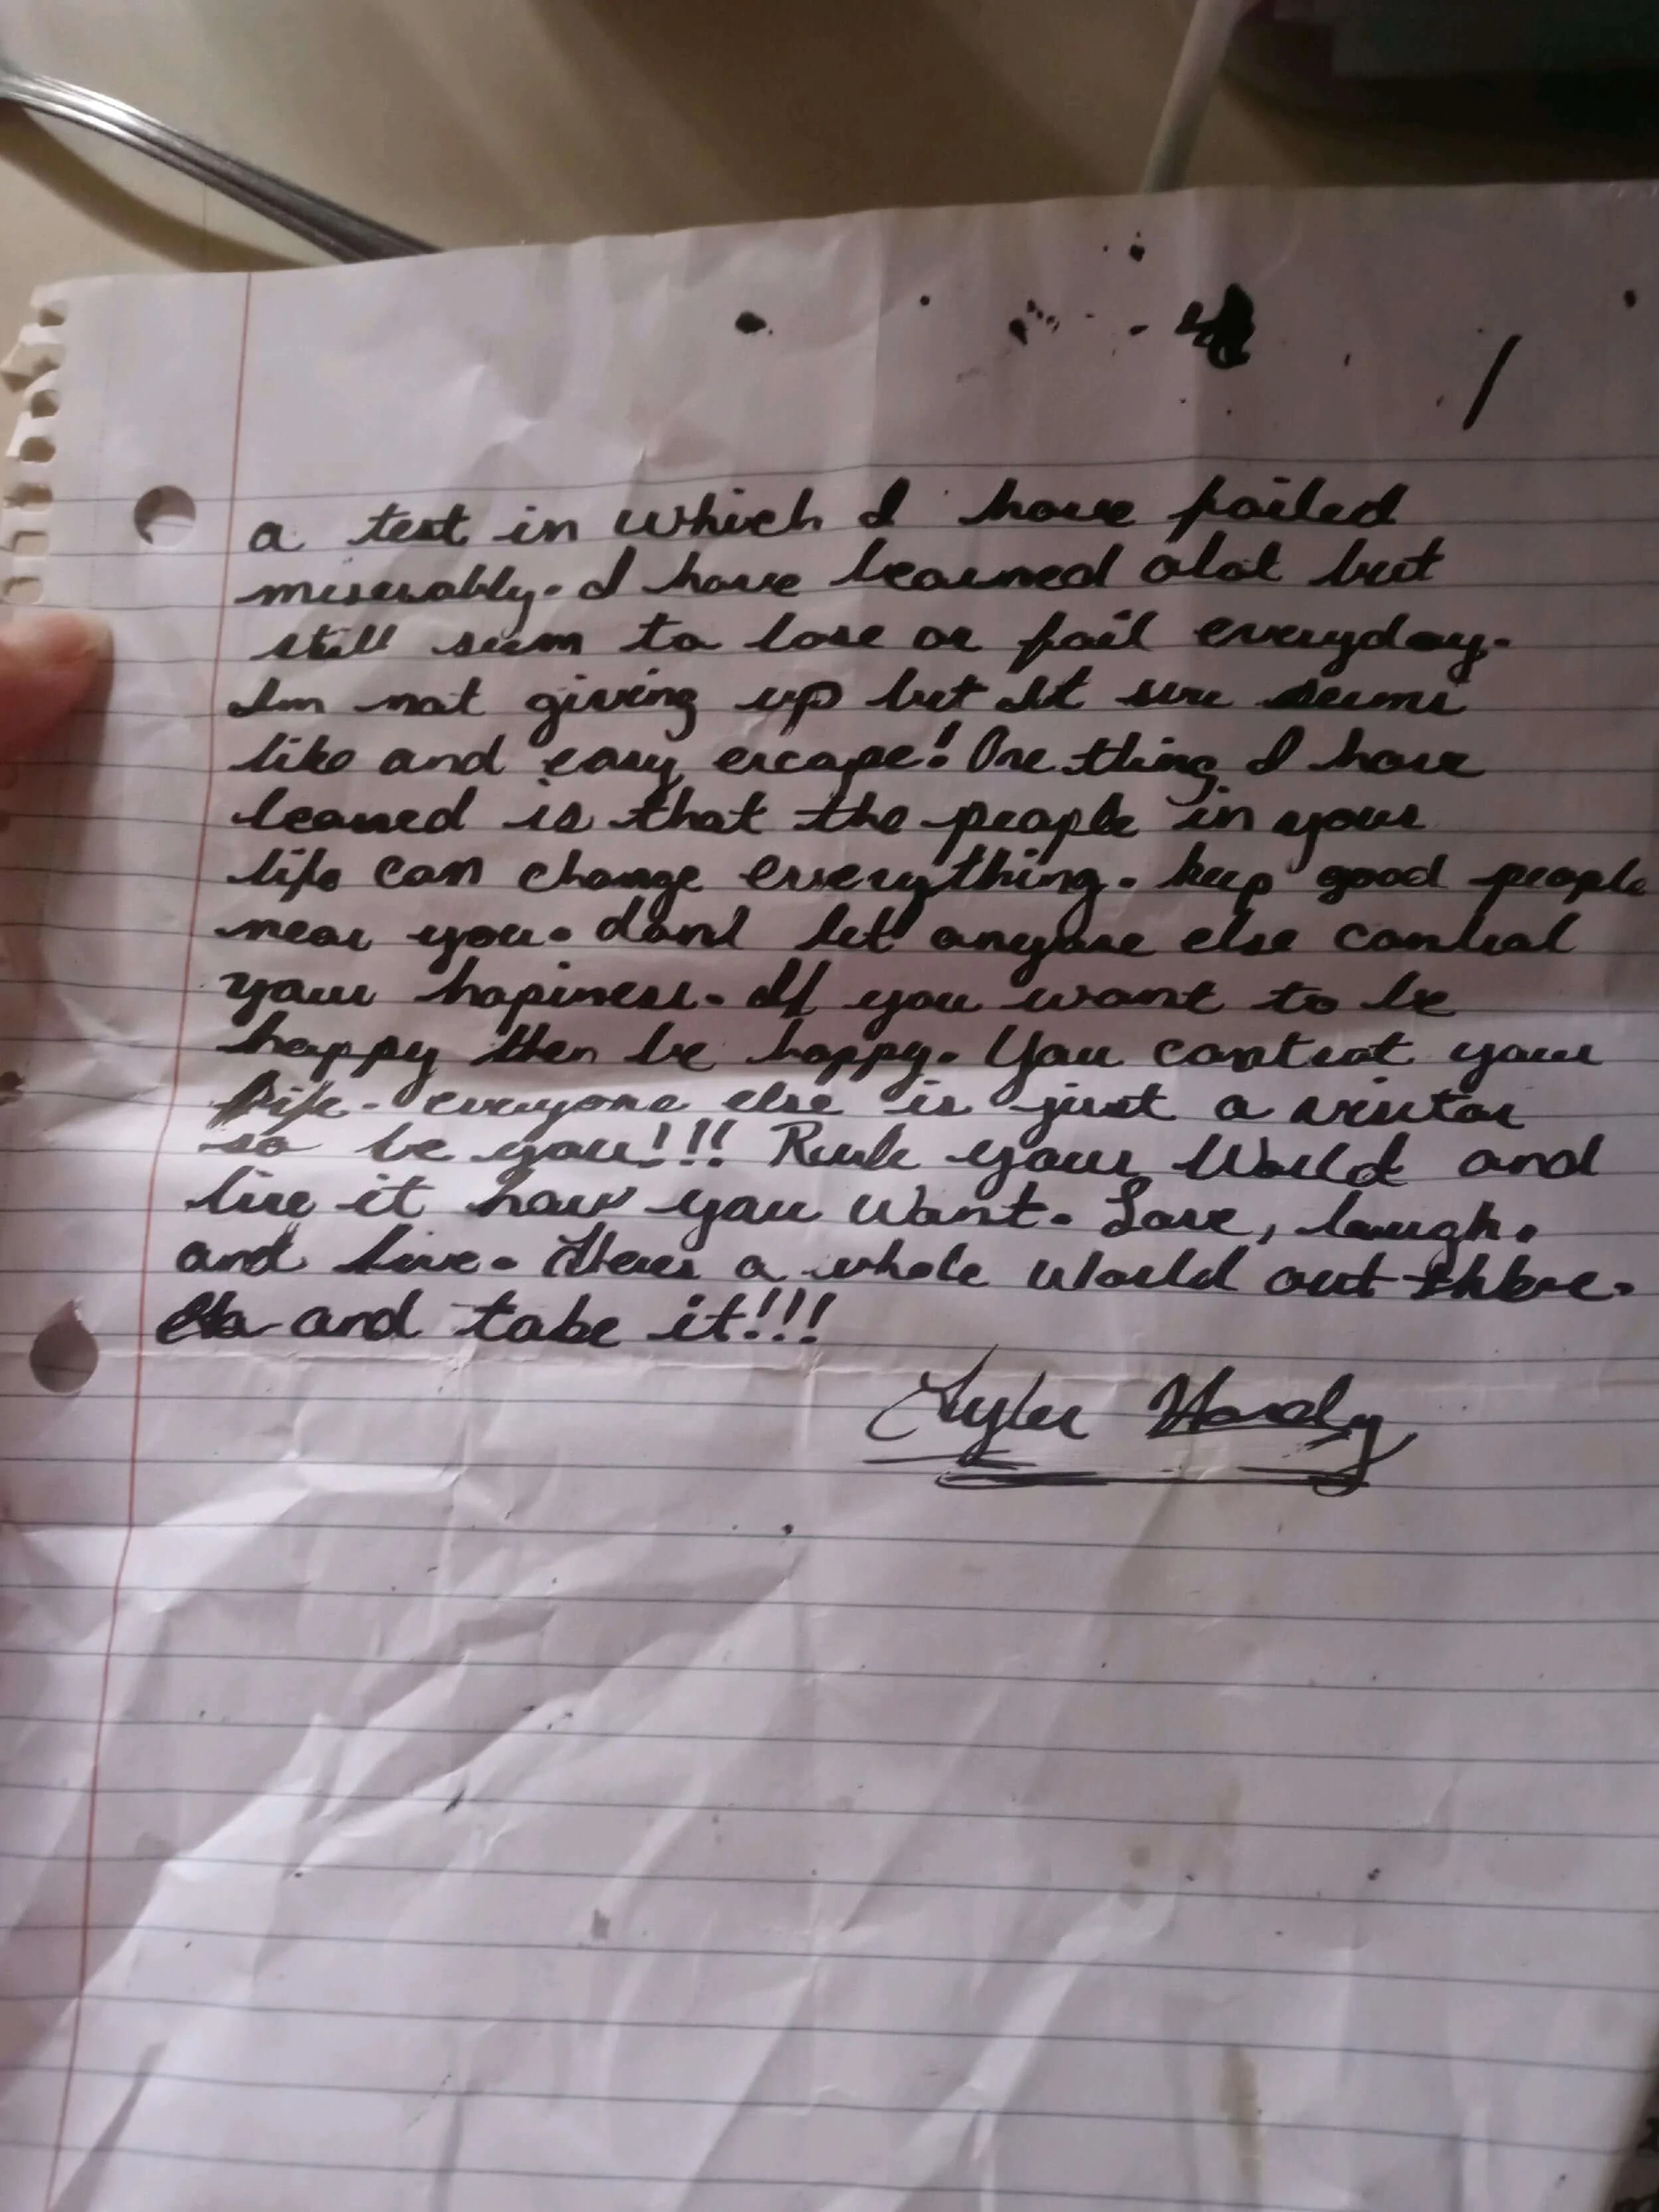 a test in which I have failed
miserably. I have learned alot but
still seem to lose or fail everyday.
Im not giving up but It sure seems
like and easy escape! One thing I have
learned is that the people in your
life can change everything. keep good people
near you. dont let anyone else control
your hapiness. If you want to be
happy then be happy. You control your
life. everyone else is just a visitor
so be you!!! Rule your World and
live it how you want. Love, laugh.
and live. Theres a whole world out there.
and take it!!!
Tyler Hardy